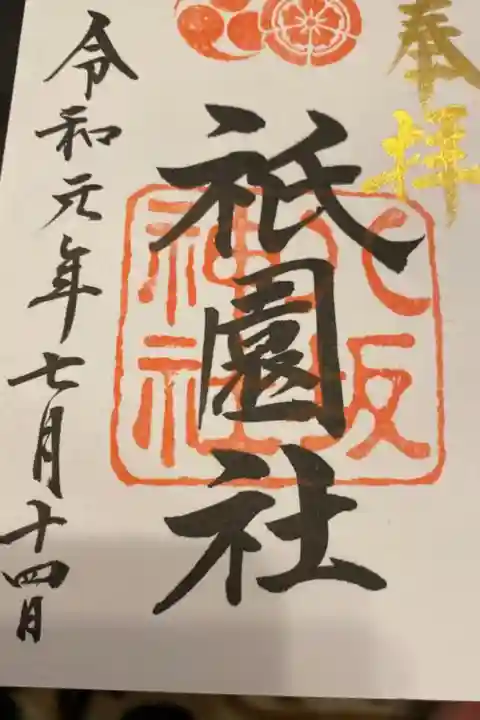 奉拝
祇園社
八坂
神社
令和元年七月十四日